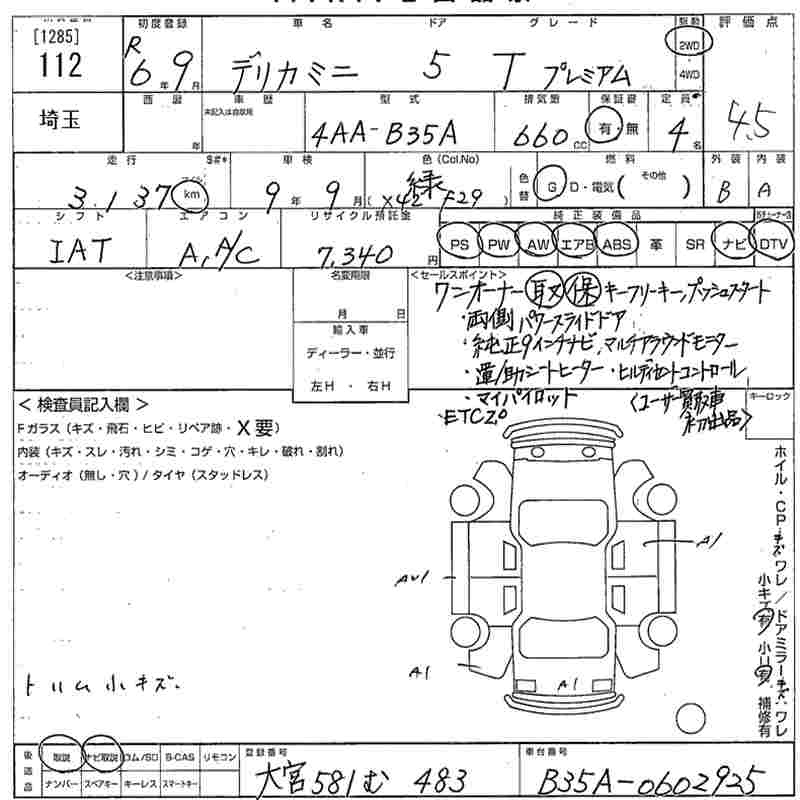 [1285]
112
埼玉
初度登録
R
6年 9月
車名
デリカミニ
ドア
5
グレード
T プレミアム
駆動
2WD
4WD
評価点
4.5
西暦
年
車歴
未記入は自家用
型式
4AA-B35A
排気量
660 CC
保証書
有・無
定員
4名
走行
3,137 km
車検
9年 9月
色(Col.No)
緑
(X42 F29)
色替
燃料
G D・電気( その他 )
外装
B
内装
A
シフト
IAT
エアコン
A,A/C
リサイクル預託金
7,340円
純正装備品
PS PW AW エアB ABS 革 SR ナビ DTV
<注意事項>
名変期限
月 日
輸入車
ディーラー・並行
左H ・ 右H
<セールスポイント>
ワンオーナー 取 保 キーフリーキー,プッシュスタート
・両側パワースライドドア
・純正9インチナビ,マルチアラウンドモニター
・運/助シートヒーター・ヒルディセントコントロール
・マイパイロット
ETC2.0
<ユーザー買取車
初出品>
キーロック
<検査員記入欄>
Fガラス(キズ・飛石・ヒビ・リペア跡・X要)
内装(キズ・スレ・汚れ・シミ・コゲ・穴・キレ・破れ・割れ)
オーディオ(無し・穴)/タイヤ(スタッドレス)
A1
AU1
A1
A1
トリム小キズ.
ホイル・CP キズ ワレ/ドアミラー キズ ワレ
小キズ有 小U有 補修有
後送品
取説 ナビ取説 ロム/SD B-CAS リモコン
ナンバー スペアキー キーレス スマートキー
登録番号
大宮 581 む 483
車台番号
B35A-0602925